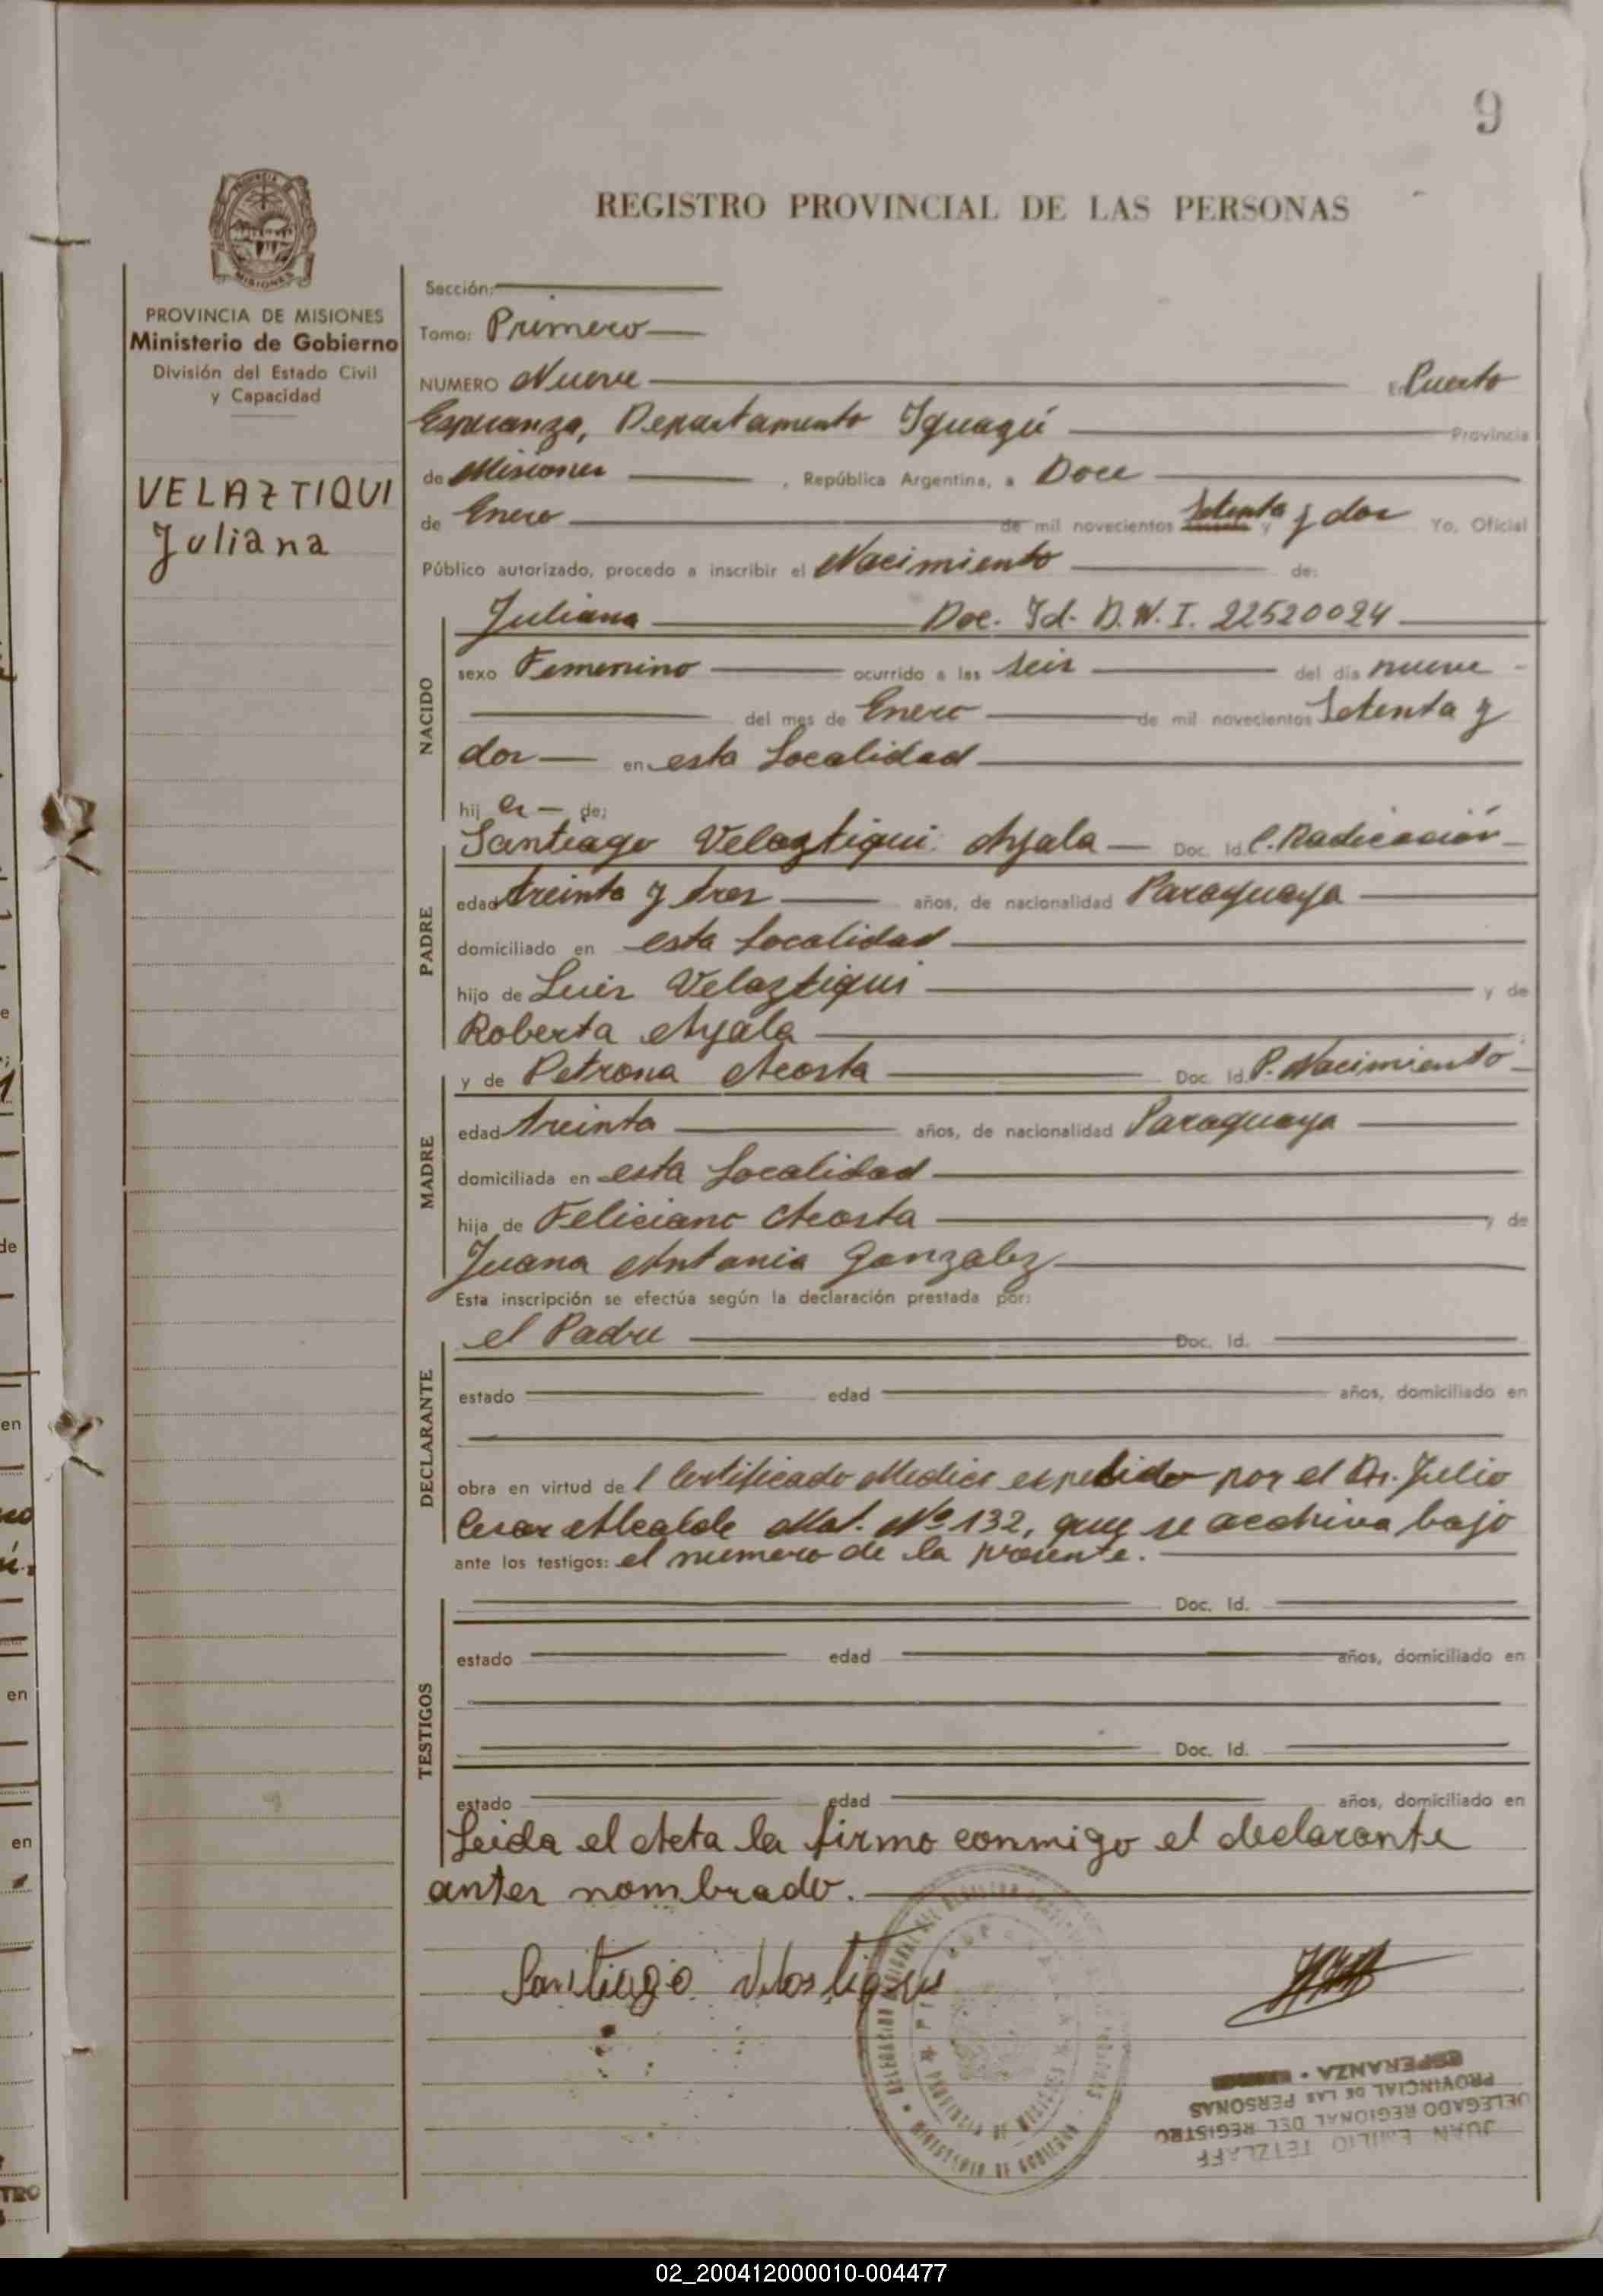 9
REGISTRO PROVINCIAL DE LAS PERSONAS
PROVINCIA DE MISIONES
Ministerio de Gobierno
División del Estado Civil
y Capacidad
VELAZTIQUI
Juliana
Sección:
Tomo: Primero
NUMERO Nueve En Puerto
Esperanza, Departamento Iguazú Provincia
de Misiones , República Argentina, a Doce
de Enero de mil novecientos setenta y y dos Yo, Oficial
Público autorizado, procedo a inscribir el Nacimiento de:
NACIDO
Juliana Doc. Id. D.N.I. 22520024
sexo Femenino ocurrido a las seis del día nueve
del mes de Enero de mil novecientos setenta y
dos en esta Localidad
hij a de:
PADRE
Santiago Velaztiqui Ayala Doc. Id. C. Radicación
edad treinta y tres años, de nacionalidad Paraguaya
domiciliado en esta Localidad
hijo de Luis Velaztiqui y de
Roberta Ayala
MADRE
y de Petrona Acosta Doc. Id. P. Nacimiento
edad treinta años, de nacionalidad Paraguaya
domiciliada en esta Localidad
hija de Feliciano Acosta y de
Juana Antonia Gonzalez
Esta inscripción se efectúa según la declaración prestada por:
DECLARANTE
el Padre Doc. Id.
estado edad años, domiciliado en
obra en virtud de l Certificado Medico expedido por el Dr. Julio
Cesar Alcalde Mat. Nº 132, que se archiva bajo
ante los testigos: el numero de la presente.
TESTIGOS
Doc. Id.
estado edad años, domiciliado en
Doc. Id.
estado edad años, domiciliado en
Leida el Acta la firmo conmigo el declarante
antes nombrado.
Santiago Velastiqui
MINISTERIO DE GOBIERNO
PROVINCIA DE MISIONES
JUAN EMILIO TETZLAFF
DELEGADO REGIONAL DEL REGISTRO
PROVINCIAL DE LAS PERSONAS
ESPERANZA -
02_200412000010-004477